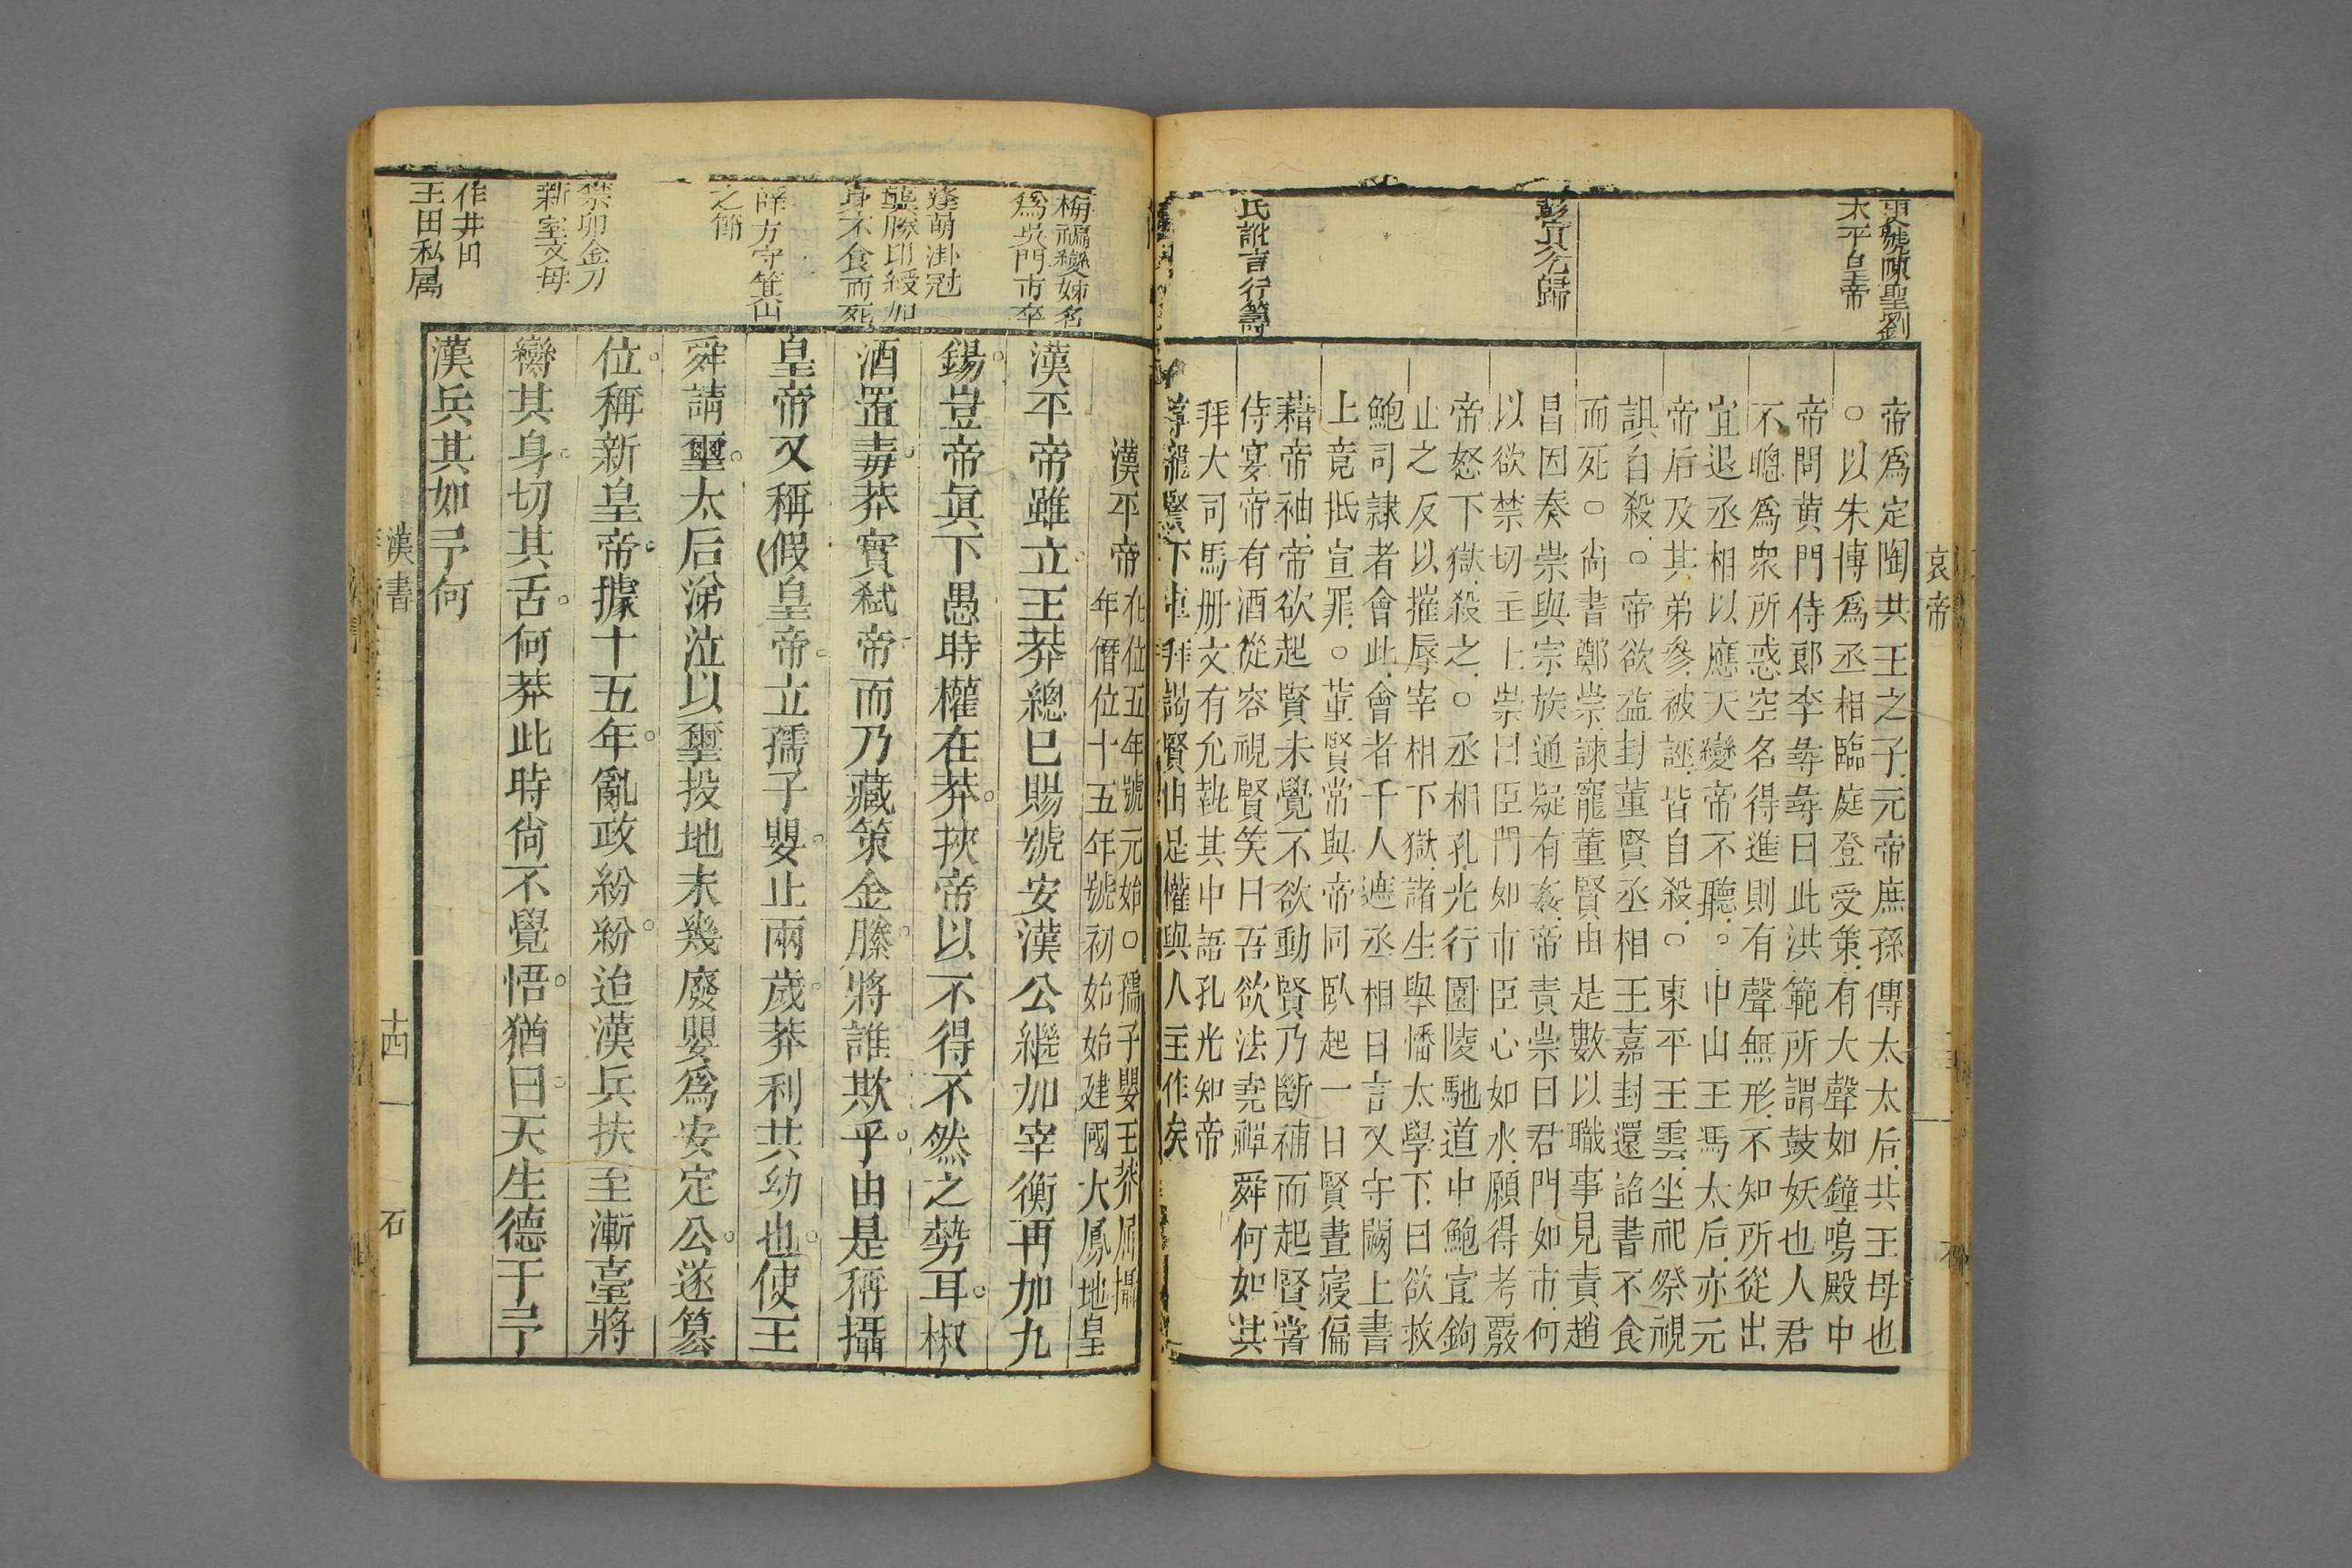 哀帝
更號陳聖劉
太平皇帝
彭宣乞歸
民訛言行籌
帝爲定陶共王之子元帝庶孫傳太太后共王母也
○以朱博爲丞相臨庭登受策有大聲如鐘鳴殿中
帝問黃門侍郎李尋尋曰此洪範所謂鼓妖也人君
不聰爲衆所惑空名得進則有聲無形不知所從出
宜退丞相以應天變帝不聽○中山王馮太后亦元
帝后及其弟參被誣皆自殺○東平王雲坐祀祭視
誤自殺○帝欲益封董賢丞相王嘉封還詔書不食
而死○尚書鄭崇諫寵董賢由是數以職事見責趙
昌因奏崇與宗族通疑有姦帝責崇曰君門如市何
以欲禁切主上崇曰臣門如市臣心如水願得考覈
帝怒下獄殺之○丞相孔光行園陵馳道中鮑宣鉤
止之反以摧辱宰相下獄諸生舉幡太學下曰欲救
鮑司隷者會此會者千人遮丞相曰言又守闕上書
上竟抵宣罪○董賢常與帝同臥起一日賢晝寢偏
藉帝袖帝欲起賢未覺不欲動賢乃斷袖而起賢嘗
侍宴帝有酒從容視賢笑曰吾欲法堯禪舜何如其
拜大司馬册文有允執其中語孔光知帝
尊寵賢下車拜謁賢由是權與人主作矣
梅福變姊名
爲吳門市卒
逢萌掛冠
龔勝印綬加
身不食而死
薛方守箕山
之節
禁卯金刀
新室文母
作井田
王田私属
漢平帝在位五年號元始○孺子嬰王莽居攝
年僭位十五年號初始始建國大鳳地皇
漢平帝雖立王莽總已賜號安漢公繼加宰衡再加九
錫豈帝眞下愚時權在莽挾帝以不得不然之勢耳椒
酒置毒莽實弑帝而乃藏策金縢將誰欺乎由是稱攝
皇帝又稱假皇帝立孺子嬰止兩歲莽利其幼也使王
舜請璽太后涕泣以璽投地未幾廢嬰爲安定公遂篡
位稱新皇帝據十五年亂政紛紛迨漢兵扶至漸臺將
臠其身切其舌何莽此時尚不覺悟猶曰天生德于予
漢兵其如予何
漢書
十四
石